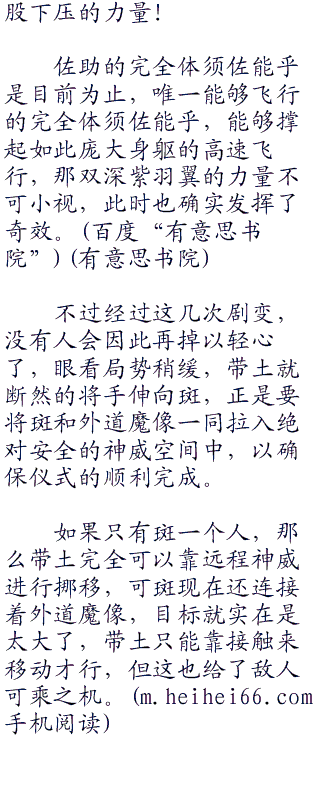 股下压的力量！
佐助的完全体须佐能乎
是目前为止，唯一能够飞行
的完全体须佐能乎，能够撑
起如此庞大身躯的高速飞
行，那双深紫羽翼的力量不
可小视，此时也确实发挥了
奇效。(百度“有意思书
院”)(有意思书院)
不过经过这几次剧变，
没有人会因此再掉以轻心
了，眼看局势稍缓，带土就
断然的将手伸向斑，正是要
将斑和外道魔像一同拉入绝
对安全的神威空间中，以确
保仪式的顺利完成。
如果只有斑一个人，那
么带土完全可以靠远程神威
进行挪移，可斑现在还连接
着外道魔像，目标就实在是
太大了，带土只能靠接触来
移动才行，但这也给了敌人
可乘之机。(m.heihei66.com
手机阅读)